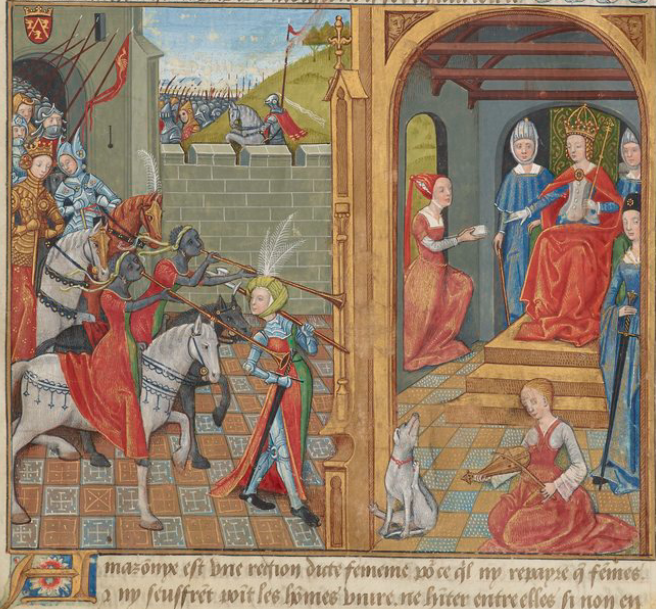 Amazonye est vne region dicte femenie poꝰce ql ny repayre q̃ fẽmes.
⁊ ny seuffrẽt poĩt les hõmes viure. ne hãter entre elles si non en